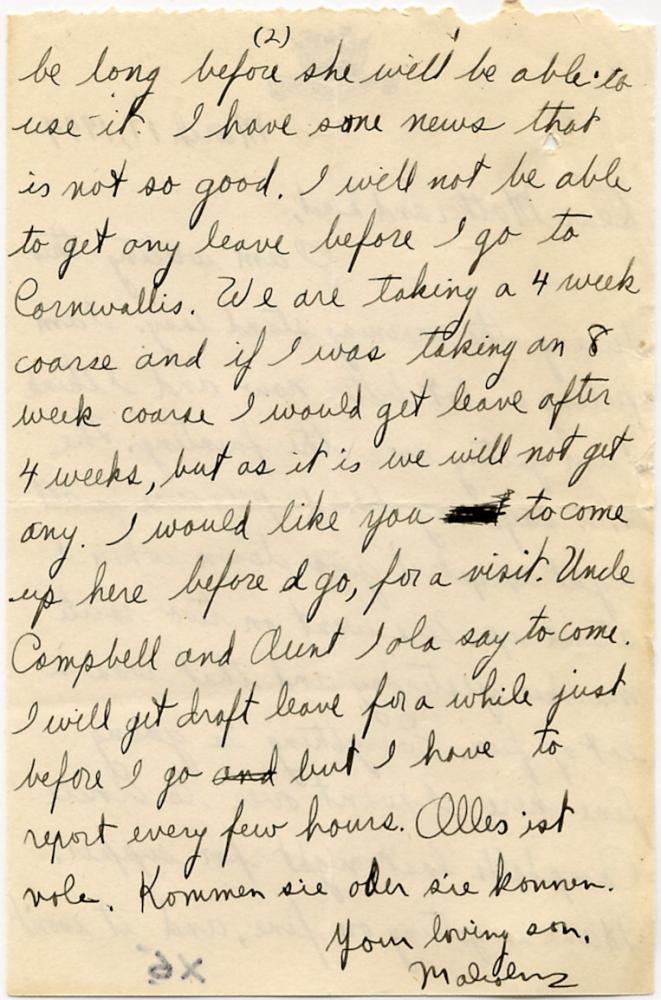 (2)
be long before she will be able to
use it. I have some news that
is not so good. I will not be able
to get any leave before I go to
Cornwallis. We are taking a 4 week
coarse and if I was taking an 8
week coarse I would get leave after
4 weeks, but as it is we will not get
any. I would like you to come
up here before I go, for a visit. Uncle
Campbell and Aunt Iola say to come.
I will get draft leave for a while just
before I go and but I have to
report every few hours. Olles ist
vole. Kommen sie oder sie konnen.
Your loving son,
Malcolm
X5